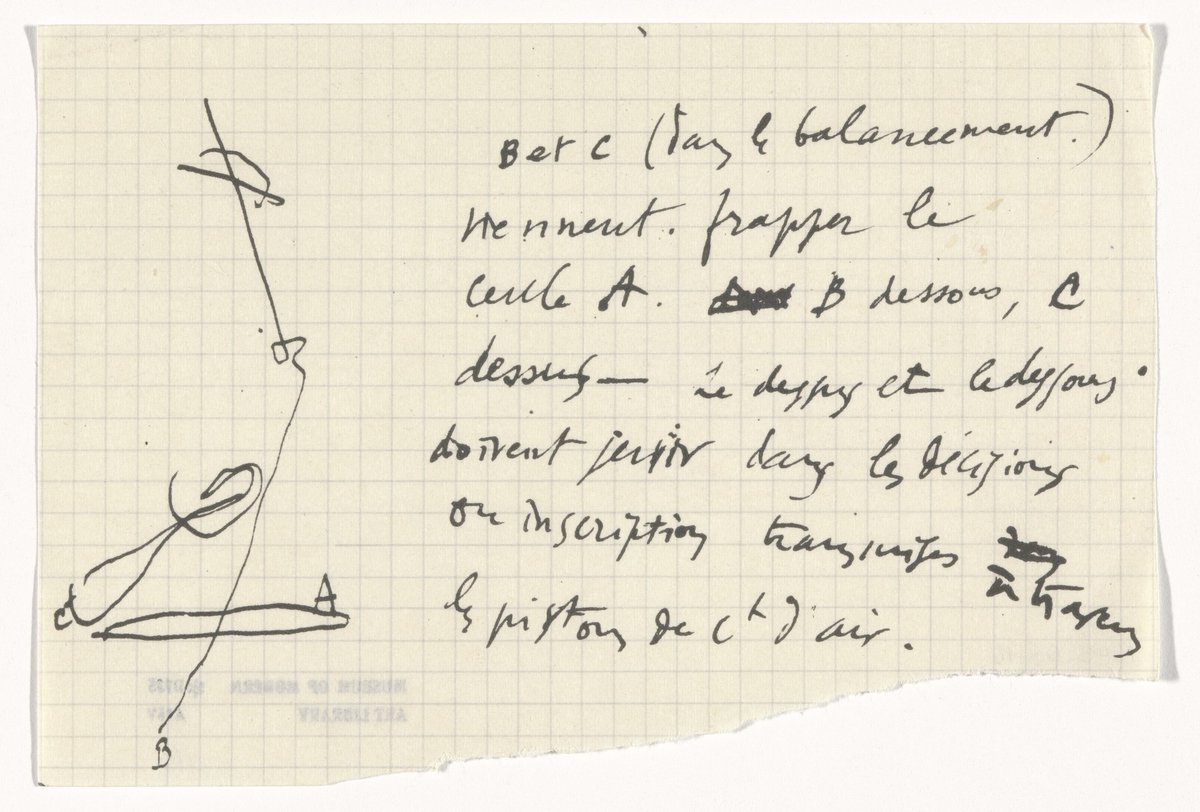 B et C (dans le balancement.)
viennent. frapper le
cercle A. B dessous, C
dessus — Le dessus et le dessous
doivent servir dans les décisions
ou inscriptions transmises
à travers
les pistons de ct d'air.
A
C
B
MUSEUM OF MODERN
ART LIBRARY